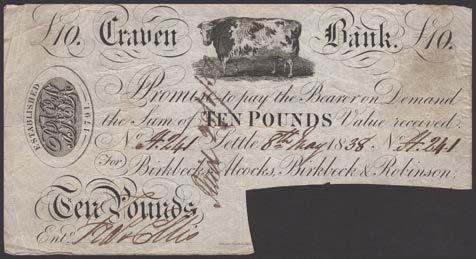 £10. Craven Bank. £10.
ESTABLISHED 1791.
I Promise to pay the Bearer on Demand
the Sum of TEN POUNDS Value received
No. A.241 Settle 8th May 1838 No. A.241
For Birkbecks, Alcocks, Birkbeck & Robinson.
Ten Pounds
Entd.